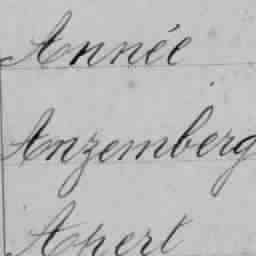 Année
Anzemberg
Apert